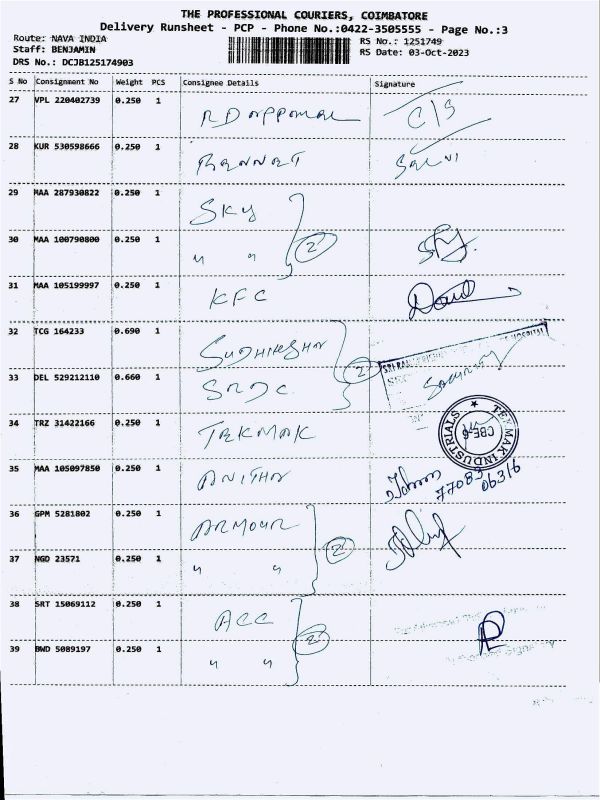 THE PROFESSIONAL COURIERS, COIMBATORE
Delivery Runsheet - PCP - Phone No.:0422-3505555 - Page No.:3
Route: NAVA INDIA
RS No.: 1251749
Staff: BENJAMIN
RS Date: 03-Oct-2023
DRS No.: DCJB125174903
S No Consignment No Weight PCS Consignee Details Signature
27 VPL 220402739 0.250 1 C/S
28 KUR 530598666 0.250 1 BENNET
29 MAA 287930822 0.250 1 SKY
30 MAA 100790800 0.250 1 " " 2
31 MAA 105199997 0.250 1 KFC
32 TCG 164233 0.690 1 HOSPITAL
33 DEL 529212110 0.660 1 2 Security
34 TRZ 31422166 0.250 1 TEKMAK
TEKMAK INDUSTRIALS
CBE-6
35 MAA 105097850 0.250 1 ANITHA
36 GPM 5281802 0.250 1 ARMOUR
37 NGD 23571 0.250 1 " " 2
38 SRT 15069112 0.250 1 ACC
39 BWD 5089197 0.250 1 " " 2